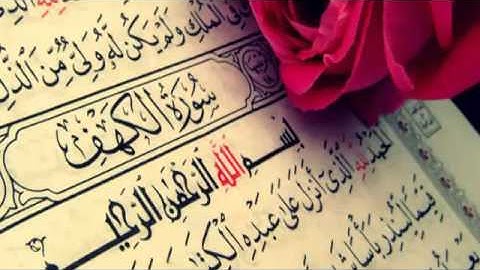 فِى ٱلْمُلْكِ وَلَمْ يَكُن لَّهُۥ وَلِىٌّ مِّنَ ٱلذُّلِّ
سُورَةُ الكَهْفِ
بِسْمِ اللَّهِ الرَّحْمَٰنِ الرَّحِيمِ
ٱلْحَمْدُ لِلَّهِ ٱلَّذِىٓ أَنزَلَ عَلَىٰ عَبْدِهِ ٱلْكِتَٰبَ
قَيِّمًا لِّيُنذِرَ بَأْسًا شَدِيدًا